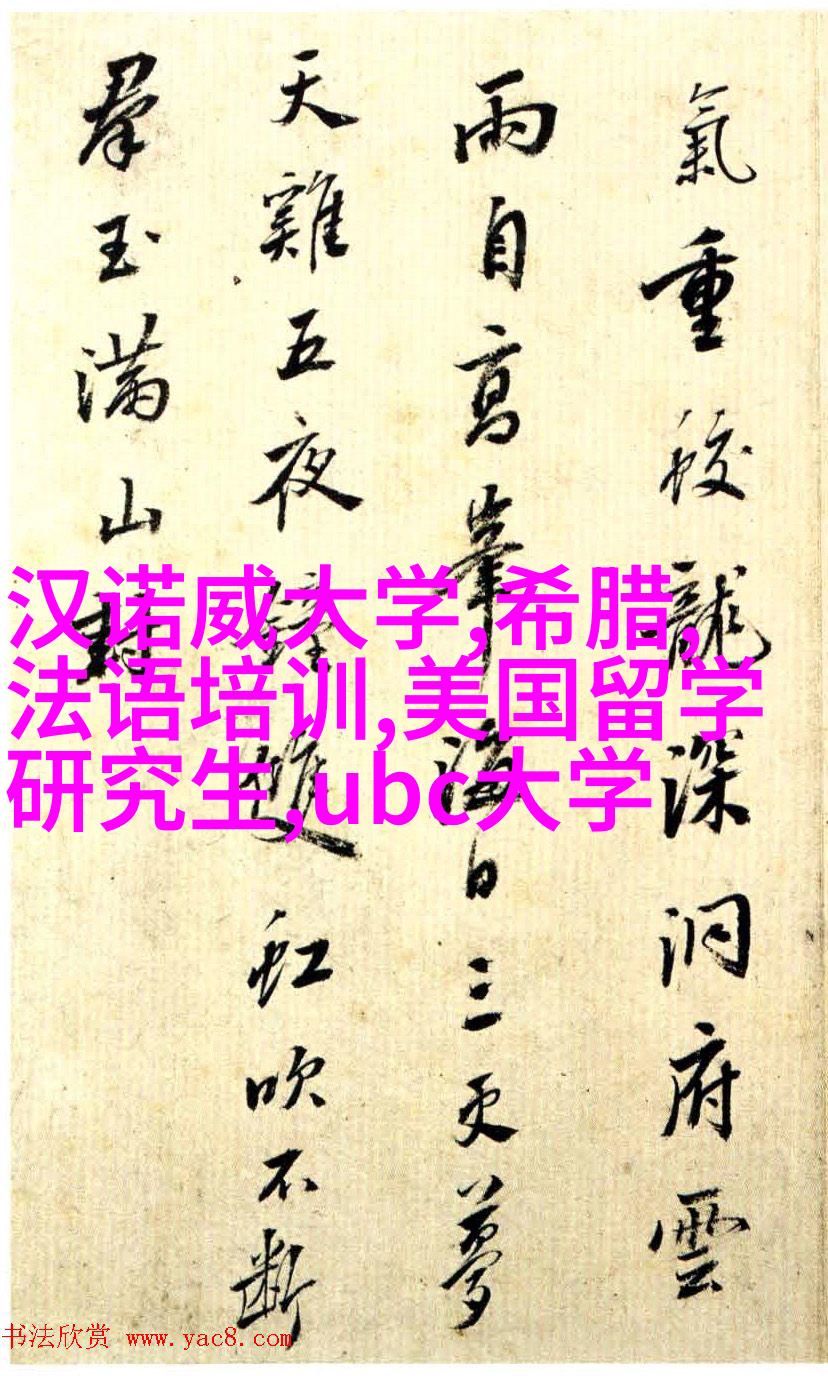 氣重蛟龍深洞府雲
雨自高峯海日三更夢
天雞五夜鐘雙虹吹不斷
羣玉滿山封
汉诺威大学,希腊,
法语培训,美国留学
研究生,ubc大学
书法欣赏 www.yac8.com